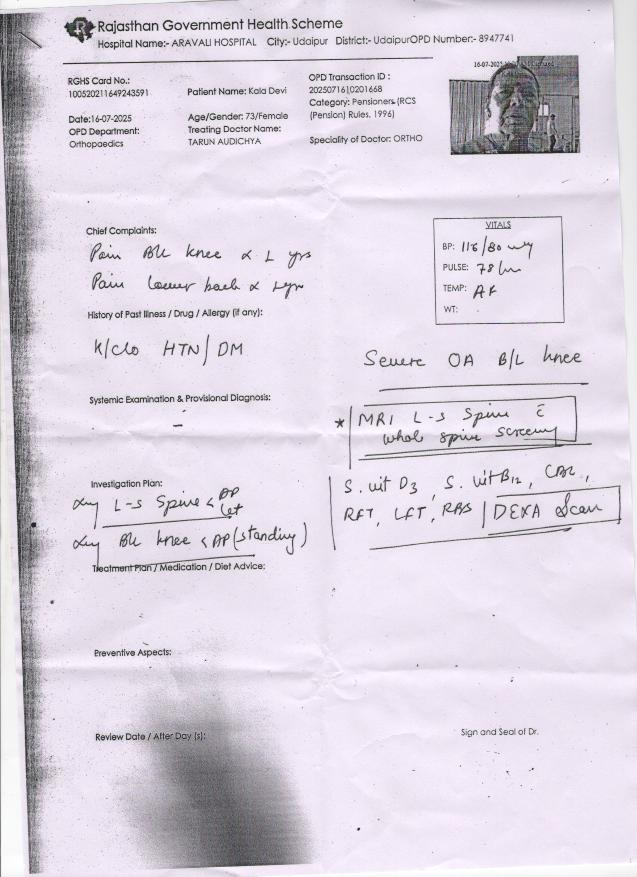 Rajasthan Government Health Scheme
Hospital Name:- ARAVALI HOSPITAL City:- Udaipur District:- UdaipurOPD Number:- 8947741
RGHS Card No.:
100520211649243591
Patient Name: Kala Devi
OPD Transaction ID :
20250716J0201668
Category: Pensioners (RCS
(Pension) Rules, 1996)
16-07-2025
Date:16-07-2025
OPD Department:
Orthopaedics
Age/Gender: 73/Female
Treating Doctor Name:
TARUN AUDICHYA
Speciality of Doctor: ORTHO
Chief Complaints:
Pain B/L knee
Pain lower back
VITALS
BP: 116/80
PULSE: 78/
TEMP: AF
WT:
History of Past Illness / Drug / Allergy (if any):
K/c/o HTN/DM
Severe OA B/L knee
Systemic Examination & Provisional Diagnosis:
-
* MRI L-S Spine c̄
whole spine screening
Investigation Plan:
Xray L-S Spine < AP
Lat
Xray B/L knee < AP (standing)
S. vit D3, S. vit B12, CBC,
RFT, LFT, RBS / DEXA Scan
Treatment Plan / Medication / Diet Advice:
Preventive Aspects:
Review Date / After Day (s):
Sign and Seal of Dr.